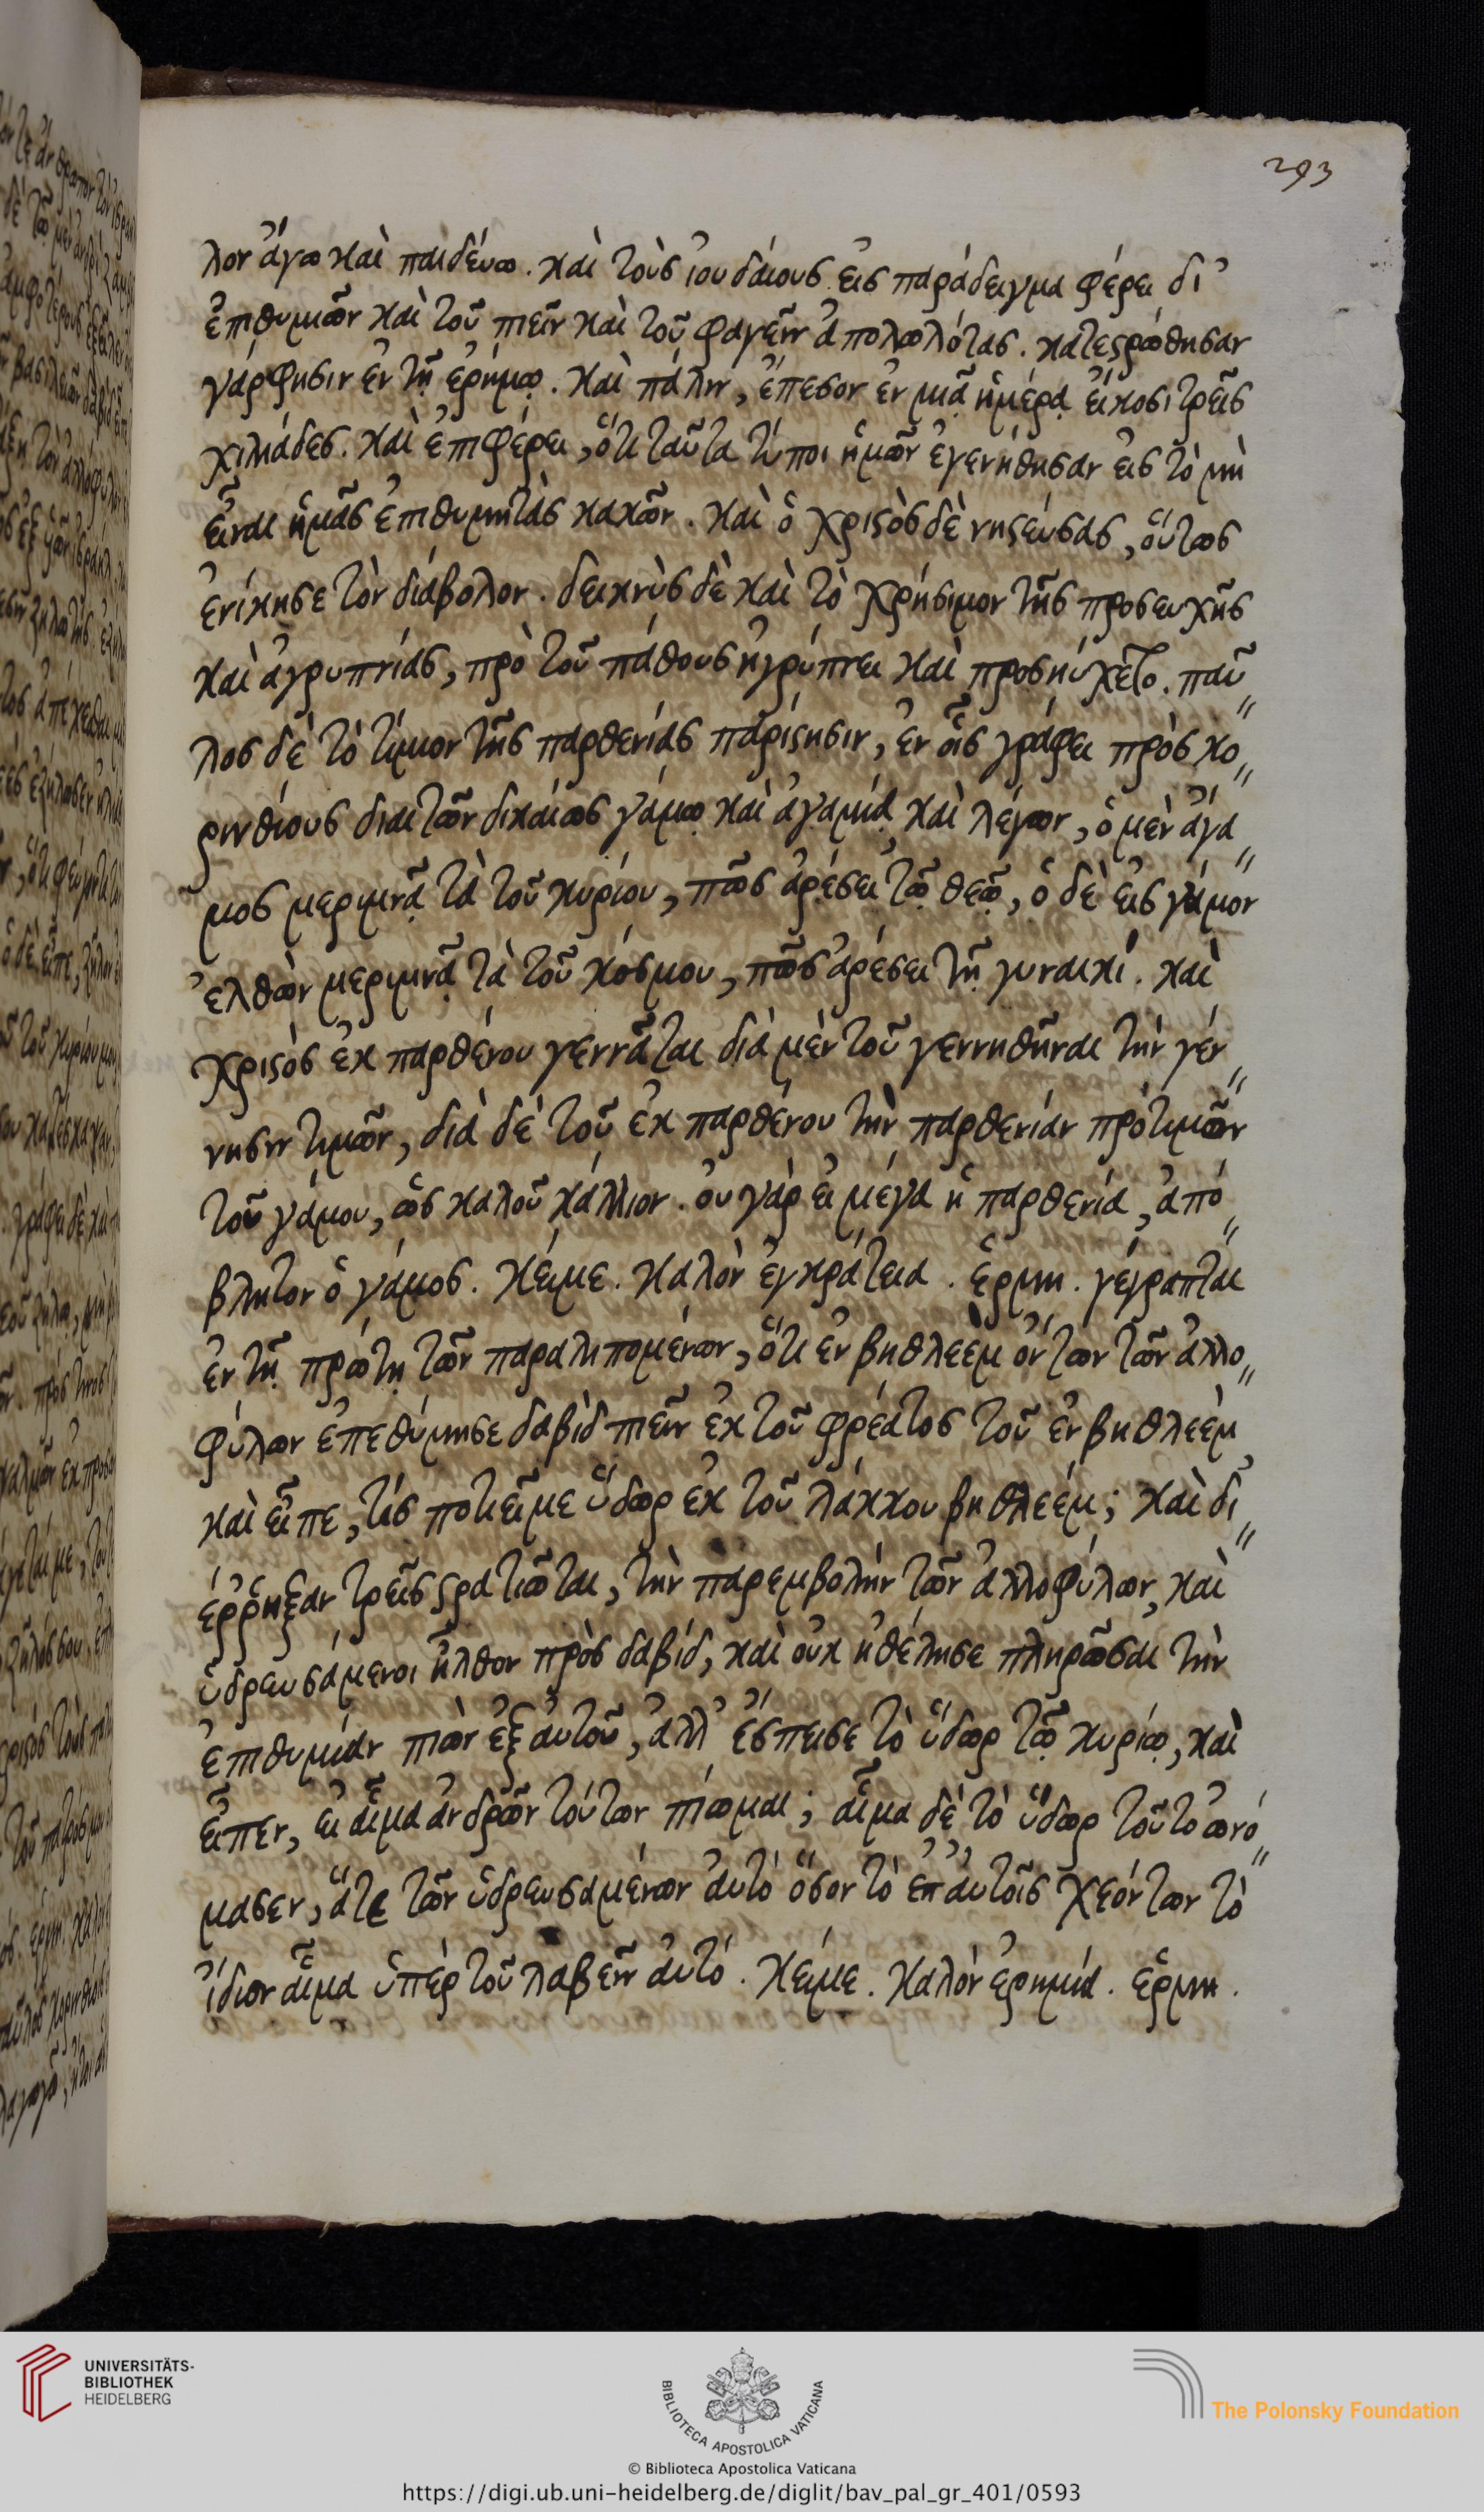 293
λον ἄγω καὶ παιδεύω. καὶ τοὺς ἰουδαίους εἰς παράδειγμα φέρει δι᾽
ἐπιθυμιῶν καὶ τοῦ πιεῖν καὶ τοῦ φαγεῖν ἀπολωλότας. κατεστρώθησαν
γάρ φησιν ἐν τῇ ἐρήμῳ. καὶ πάλιν, ἔπεσον ἐν μιᾷ ἡμέρᾳ εἴκοσι τρεῖς
χιλιάδες. καὶ ἐπιφέρει, ὅτι ταῦτα τύποι ἡμῶν ἐγενήθησαν εἰς τὸ μὴ
εἶναι ἡμᾶς ἐπιθυμητὰς κακῶν. καὶ ὁ χριστὸς δὲ νηστεύσας, οὕτως
ἐνίκησε τὸν διάβολον. δεικνὺς δὲ καὶ τὸ χρήσιμον τῆς προσευχῆς
καὶ ἀγρυπνίας, πρὸ τοῦ πάθους ἠγρύπνει καὶ προσηύχετο. παῦ
λος δὲ τὸ τίμιον τῆς παρθενίας παρίστησιν, ἐν οἷς γράφει πρὸς κο
ρινθίους διαιτῶν δικαίως γάμῳ καὶ ἀγαμίᾳ καὶ λέγων, ὁ μὲν ἄγα
μος μεριμνᾷ τὰ τοῦ κυρίου, πῶς ἀρέσει τῷ θεῷ, ὁ δὲ εἰς γάμον
ἐλθὼν μεριμνᾷ τὰ τοῦ κόσμου, πῶς ἀρέσει τῇ γυναικί. καὶ
χριστὸς ἐκ παρθένου γεννᾶται διὰ μὲν τοῦ γεννηθῆναι τὴν γέν
νησιν τιμῶν, διὰ δὲ τοῦ ἐκ παρθένου τὴν παρθενίαν προτιμῶν
τοῦ γάμου, ὡς καλοῦ κάλλιον. οὐ γὰρ εἰ μέγα ἡ παρθενία, ἀπό
βλητον ὁ γάμος. κείμε. καλὸν ἐγκράτεια. ἑρμη. γέγραπται
ἐν τῇ πρώτῃ τῶν παραλιπομένων, ὅτι ἐν βηθλεὲμ ὄντων τῶν ἀλλο
φύλων ἐπεθύμησε δαβὶδ πιεῖν ἐκ τοῦ φρέατος τοῦ ἐν βηθλεὲμ
καὶ εἶπε, τίς ποτιεῖ με ὕδωρ ἐκ τοῦ λάκκου βηθλεέμ; καὶ δι
έρρηξαν τρεῖς στρατιῶται, τὴν παρεμβολὴν τῶν ἀλλοφύλων, καὶ
ὑδρευσάμενοι ἦλθον πρὸς δαβίδ, καὶ οὐκ ἠθέλησε πληρῶσαι τὴν
ἐπιθυμίαν πιὼν ἐξ αὐτοῦ, ἀλλ᾽ ἔσπεισε τὸ ὕδωρ τῷ κυρίῳ, καὶ
εἶπεν, εἰ αἷμα ἀνδρῶν τούτων πίωμαι; αἷμα δὲ τὸ ὕδωρ τοῦτο ὠνό
μασεν, ἅτε τῶν ὑδρευσαμένων αὐτὸ ὅσον τὸ ἐπ᾽ αὐτοῖς χεόντων τὸ
ἴδιον αἷμα ὑπὲρ τοῦ λαβεῖν αὐτό. κείμε. καλὸν ἐρημία. ἑρμη.
UNIVERSITÄTS-
BIBLIOTHEK
HEIDELBERG
BIBLIOTECA APOSTOLICA VATICANA
The Polonsky Foundation
© Biblioteca Apostolica Vaticana
https://digi.ub.uni-heidelberg.de/diglit/bav_pal_gr_401/0593